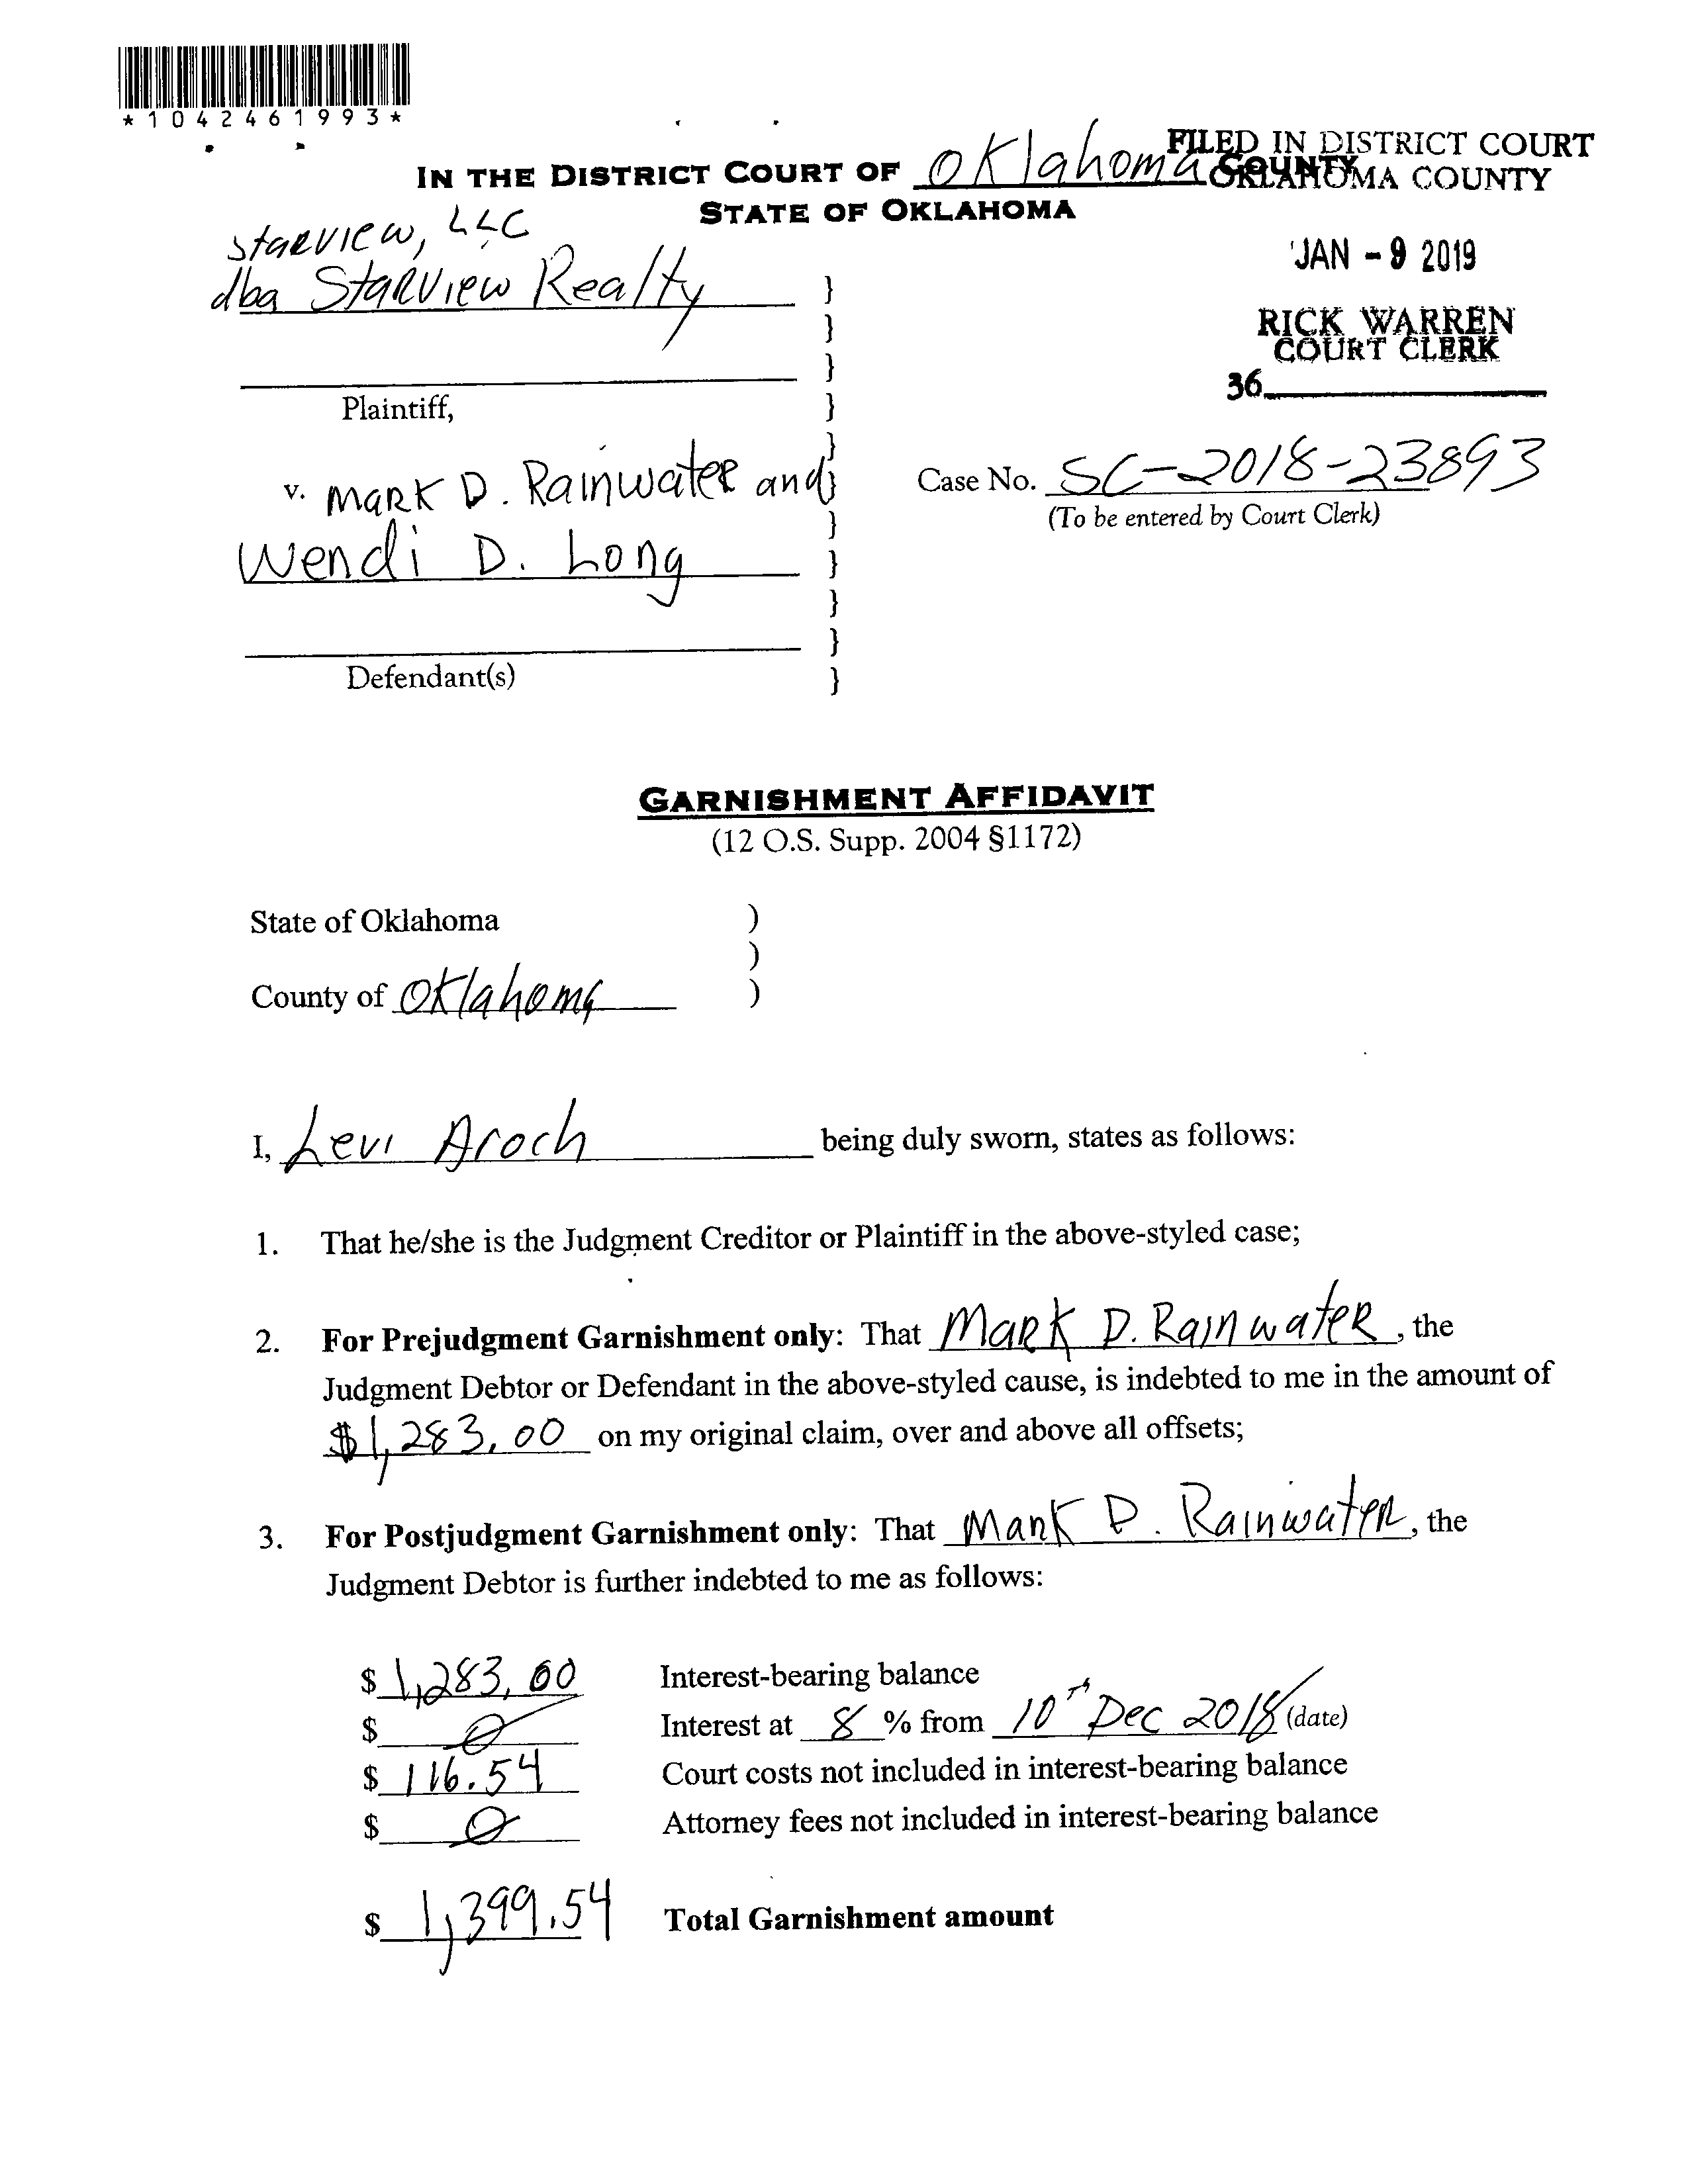 *1042461993*
FILED IN DISTRICT COURT
OKLAHOMA COUNTY
IN THE DISTRICT COURT OF Oklahoma COUNTY
STATE OF OKLAHOMA
JAN - 9 2019
RICK WARREN
COURT CLERK
36
Starview, LLC
dba Starview Realty }
}
}
Plaintiff, }
}
v. Mark D. Rainwater and }
Case No. SC-2018-23893
(To be entered by Court Clerk)
}
Wendi D. Long }
}
}
Defendant(s) }
GARNISHMENT AFFIDAVIT
(12 O.S. Supp. 2004 §1172)
State of Oklahoma )
)
County of Oklahoma )
I, Levi Aroch being duly sworn, states as follows:
1. That he/she is the Judgment Creditor or Plaintiff in the above-styled case;
2. For Prejudgment Garnishment only: That Mark D. Rainwater, the
Judgment Debtor or Defendant in the above-styled cause, is indebted to me in the amount of
$1,283.00 on my original claim, over and above all offsets;
3. For Postjudgment Garnishment only: That Mark D. Rainwater, the
Judgment Debtor is further indebted to me as follows:
$ 1,283.00 Interest-bearing balance
$ 0 Interest at 8 % from 10th Dec 2018 (date)
$ 116.54 Court costs not included in interest-bearing balance
$ 0 Attorney fees not included in interest-bearing balance
$ 1,399.54 Total Garnishment amount